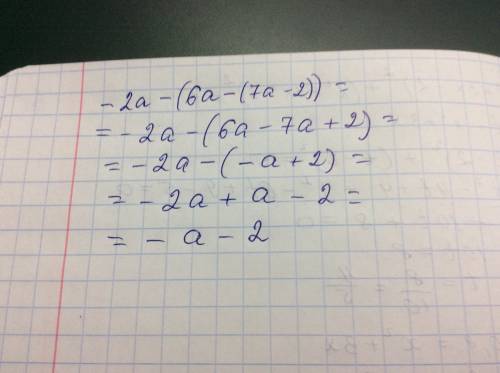 - 2a - (6a - (7a - 2)) =
= - 2a - (6a - 7a + 2) =
= - 2a - (- a + 2) =
= - 2a + a - 2 =
= - a - 2